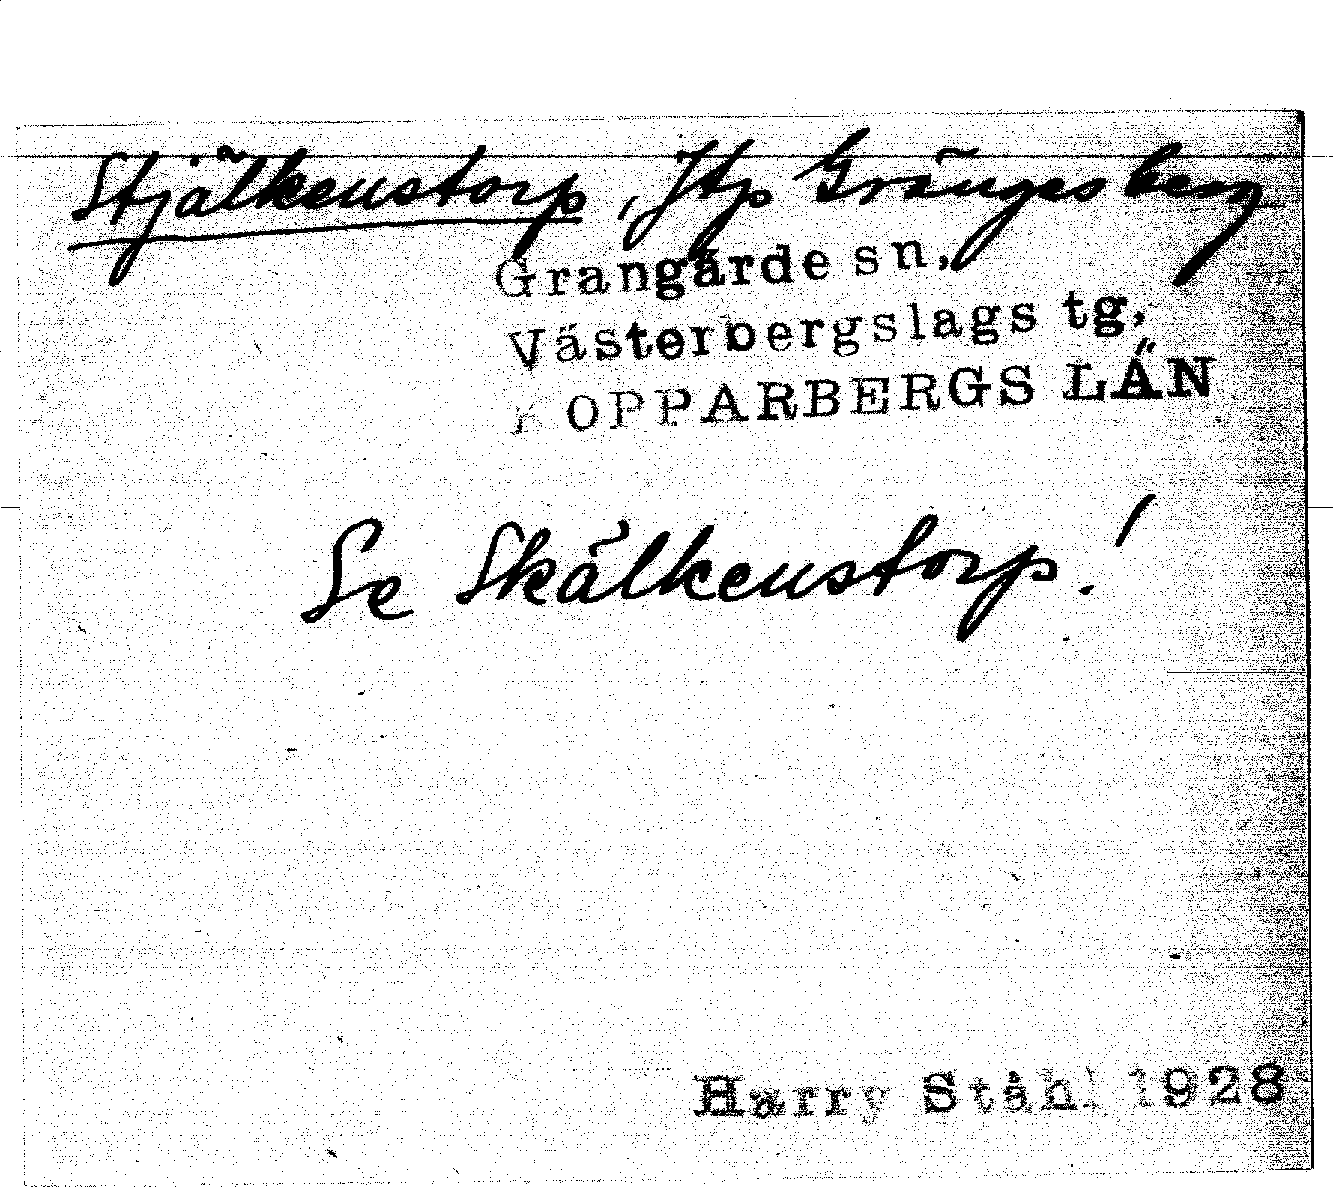 Stjälkenstorp, Jtp Grängesberg
Grangärde sn,
Västerbergslags tg,
KOPPARBERGS LÄN
Se Skälkenstorp!
Harry Ståhl 1928